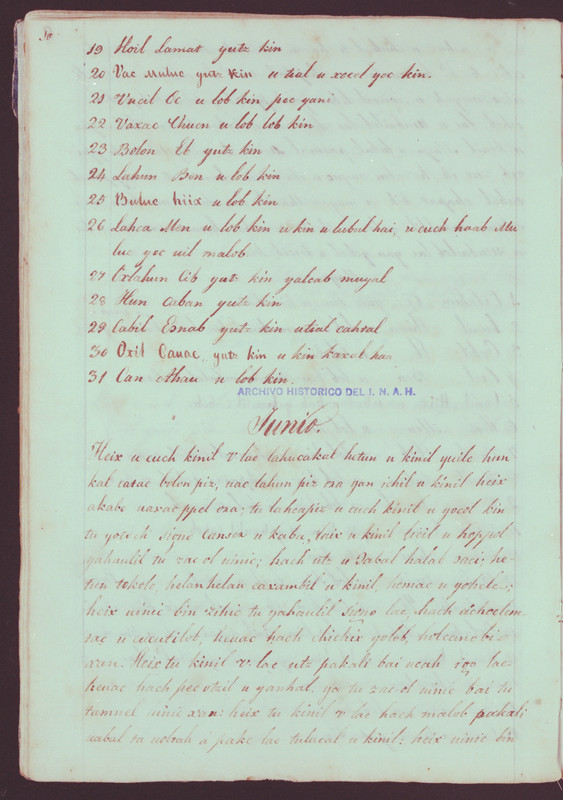 19 Hoil Lamat yutz kin
20 Vac Muluc yutz kin u tial u xocol yoc kin.
21 Vucil Oc u lob kin pec yani
22 Vaxac Chuen u lob lob kin
23 Bolon Eb yutz kin
24 Lahun Ben u lob kin
25 Buluc hiix u lob kin
26 Lahca Men u lob kin u kin u lubul hai, u cuch haab Mu
luc yoc uil malob
27 Oxlahun Cib yutz kin yalcab muyal
28 Hun Caban yutz kin
29 Cabil Esnab yutz kin utial cahtal
30 Oxil Cauac, yutz kin u kin kaxal haa
31 Can Ahau u lob kin.
ARCHIVO HISTORICO DEL I. N. A. H.
Junio.
Heix u cuch kinil V lae lahucakal hutun u kinil yuile hun
kal catac bolon piz, uac lahun piz ora yan ichil u kinil heix
akabe uaxacppel ora; tu lahcapiz u cuch kinil u yocol kin
tu yotoch signo Cancer u kaba, laix u kinil licil u hoppol
yahaulil tu zac ol uinic; hach utz u Dabal halal zaci; he
tun tokole, helanhelan caxambil u kinil, homac u yohele;
heix uinic bin zihic tu yahaulil signo lae, hach
zac u heuac hach chichix yolob,
xan. Heix tu kinil V. lae utz pakali bai ucah lae
heuac hach pec otzil u yanhal, ya tu zac ol uinic bai tu
tamnel uinic xan: heix tu kinil V lae hach malob pakali
uabal ta uotah á pake lae tulacal u kinil: heix uinic bin